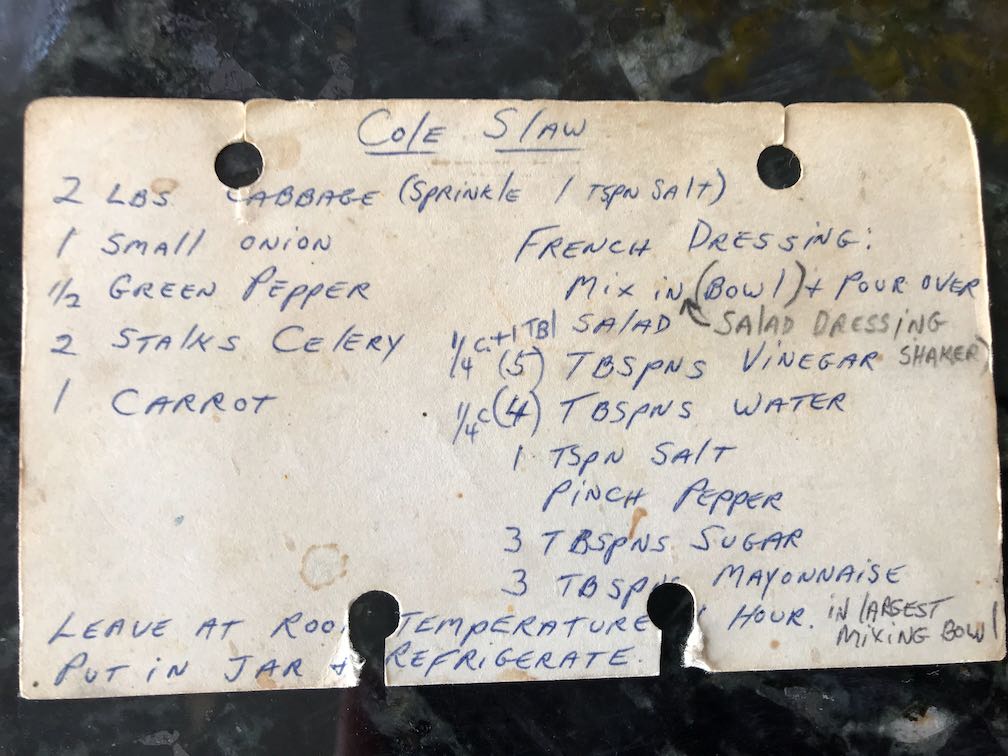 Cole Slaw
2 LBS CABBAGE (SPRINKLE 1 TSPN SAlt)
1 SMAll ONION
1/2 GREEN PEPPER
2 STAlKS CElERY
1 CARROT
FRENCH DRESSING:
MIX IN (BOWl) + POUR OVER
SAlAD
SAlAD DRESSING
SHAKER)
1/4 c. + 1 TBl (5) TBSPNS VINEGAR
1/4 c (4) TBSPNS WATER
1 TSPN SAlT
PINCH PEPPER
3 TBSPNS SUGAR
3 TBSPN MAYONNAISE
LEAVE AT ROOM TEMPERATURE 1 HOUR. IN lARGEST
MIXING BOWl
PUT IN JAR & REFRIGERATE.